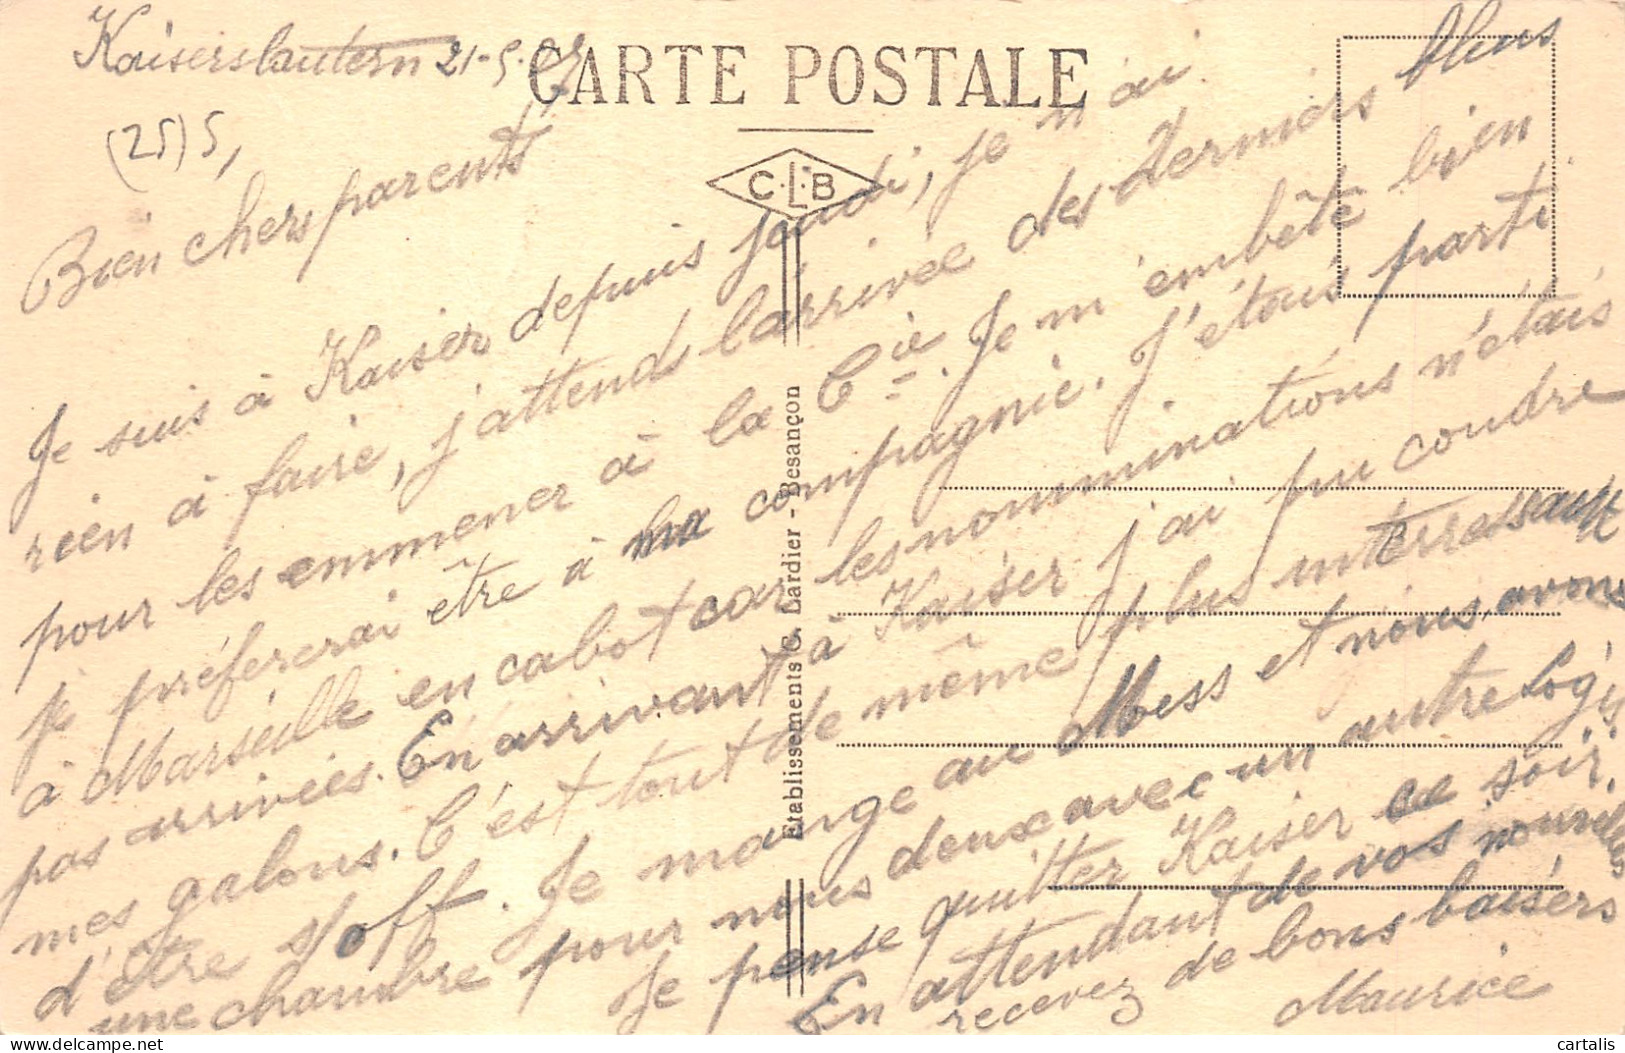 Kaiserslautern 21-5-
CARTE POSTALE
(25) 5,
C.L.B
Bien chers parents
Je suis à Kaiser depuis jeudi, je n'ai
rien à faire, j'attends l'arrivée des derniers bleus
pour les emmener à la Cie. Je m'embête bien
je préfererai être à ma compagnie. J'étais parti
à Marseille en cabot car les nominations n'étais
pas arrivées. En arrivant à Kaiser j'ai pu coudre
mes galons. C'est tout de même plus interressant
d'être s/off. Je mange au Mess et nous avons
une chambre pour nous deux avec un autre Logis
Je pense quitter Kaiser ce soir.
En attendant de vos nouvelles
recevez de bons baisers
Maurice
Etablissements C. Lardier - Besançon
cartalis